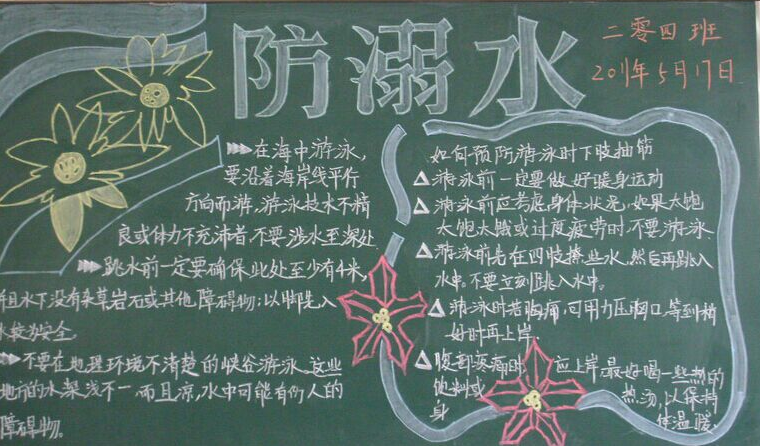 防溺水
二零四班
2011年5月17日
在海中游泳，
要沿着海岸线平行
方向而游，游泳技术不精
良或体力不充沛者，不要涉水至深处.
跳水前一定要确保此处至少有4米，
且水下没有杂草岩石或其他障碍物；以脚先入
水较为安全。
不要在地理环境不清楚的峡谷游泳.这些
地方的水深浅不一，而且凉，水中可能有伤人的
障碍物。
如何预防游泳时下肢抽筋
游泳前一定要做好暖身运动
游泳前应考虑身体状况，如果太饱
太饿或过度疲劳时，不要游泳.
游泳前先在四肢撩些水，然后再跳入
水中.不要立刻跳入水中。
游泳时若胸痛，可用力压胸口，等到稍
好时再上岸.
腹部疼痛时 应上岸，最好喝一些热的
饮料或 热汤，以保持
身 体温暖.